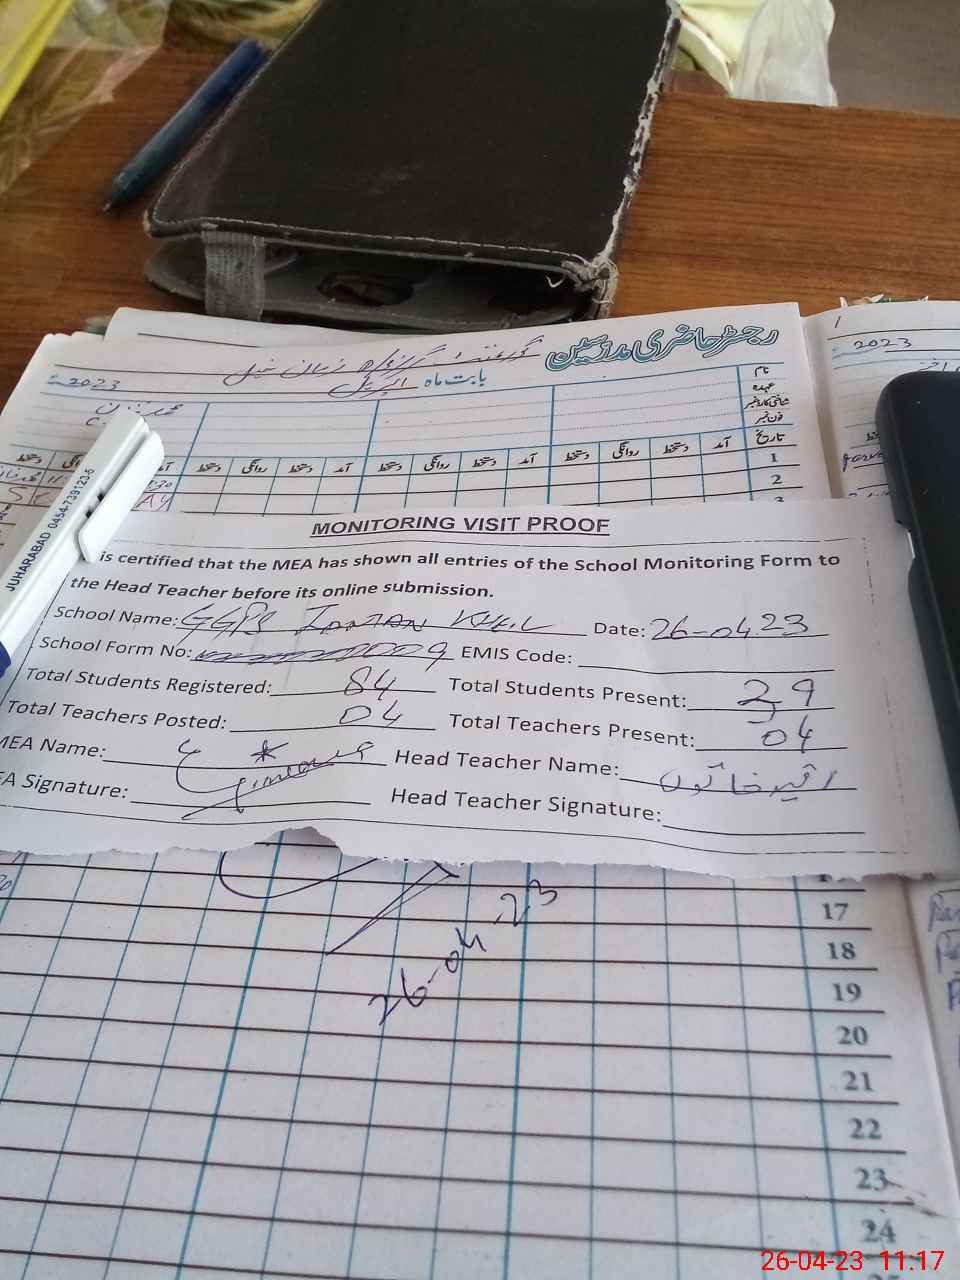 رجسٹر حاضری مدرسین
بابت ماہ اپریل
2023
2023
نام
عہدہ
شناختی کارڈ نمبر
فون نمبر
تاریخ آمد دستخط روانگی دستخط آمد دستخط روانگی دستخط آمد دستخط روانگی دستخط
1
2
3
JUHARABAD 0454-7391235
MONITORING VISIT PROOF
is certified that the MEA has shown all entries of the School Monitoring Form to
the Head Teacher before its online submission.
School Name: GGPS KHEL Date: 26-04-23
School Form No: EMIS Code:
Total Students Registered: 84 Total Students Present: 39
Total Teachers Posted: 04 Total Teachers Present: 04
MEA Name: Head Teacher Name:
EA Signature: Head Teacher Signature:
26-04-23
17
18
19
20
21
22
23
24
26-04-23 11.17